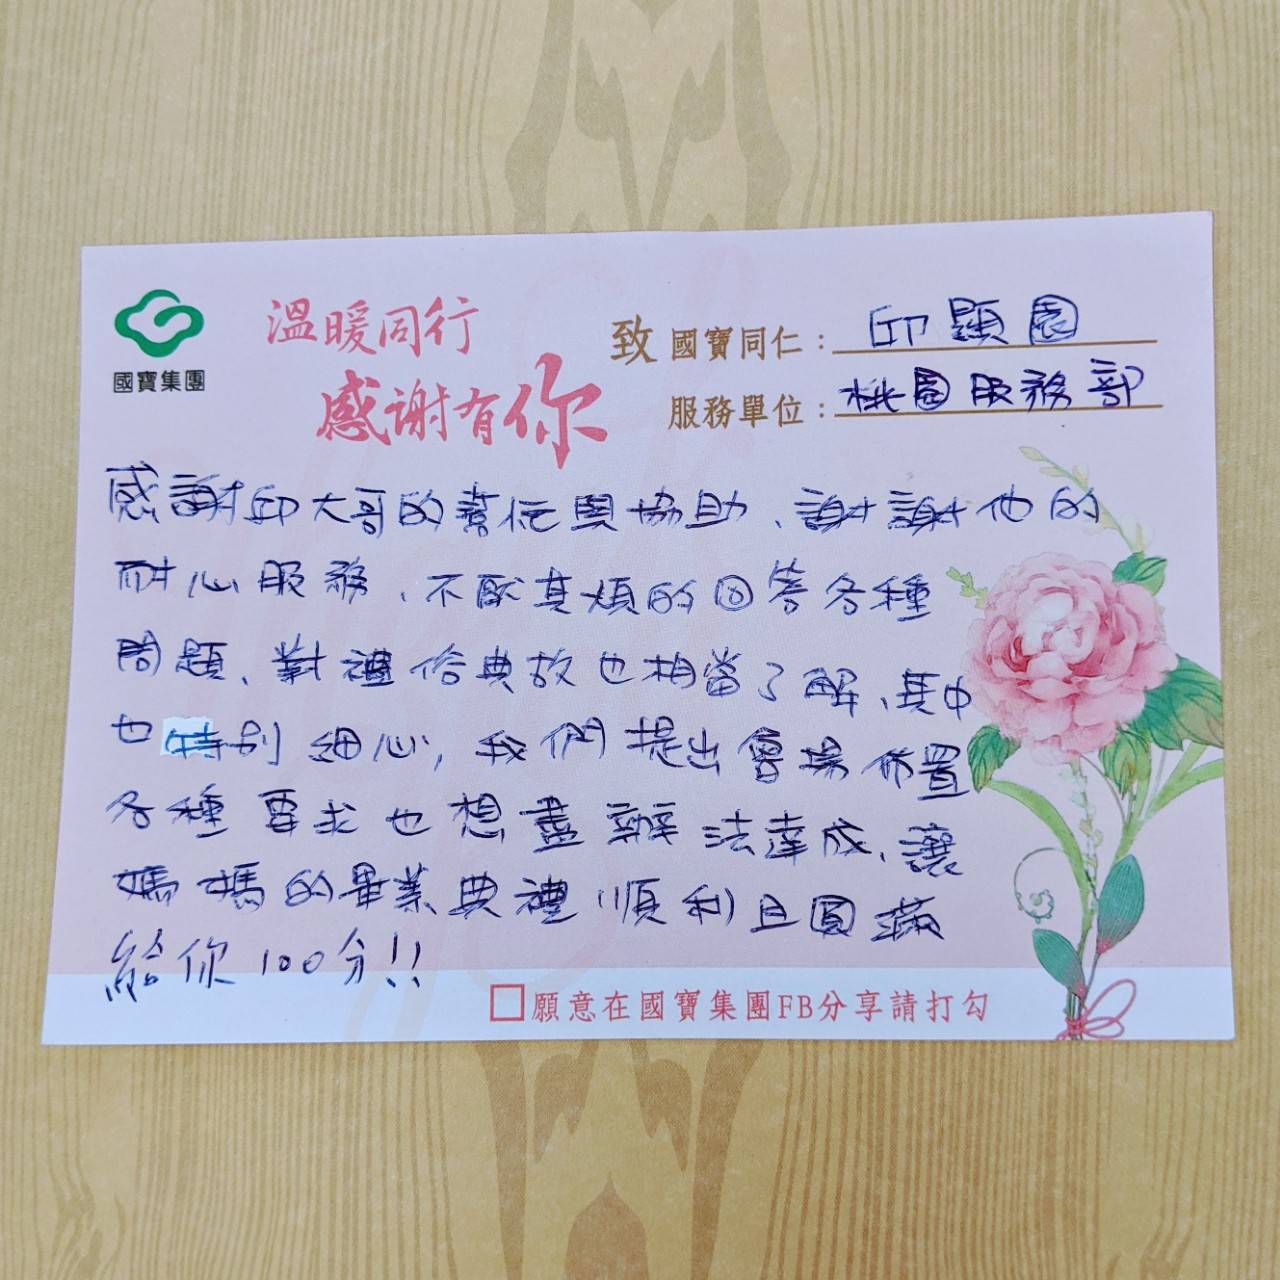 國寶集團
溫暖同行
感謝有你
致 國寶同仁：邱顯園
服務單位：桃園服務部
感謝邱大哥的幫忙與協助、謝謝他的
耐心服務、不厭其煩的回答各種
問題、對禮俗典故也相當了解、其中
也特別細心，我們提出會場佈置
各種要求也想盡辦法達成、讓
媽媽的畢業典禮順利且圓滿
給你100分!!
□願意在國寶集團FB分享請打勾